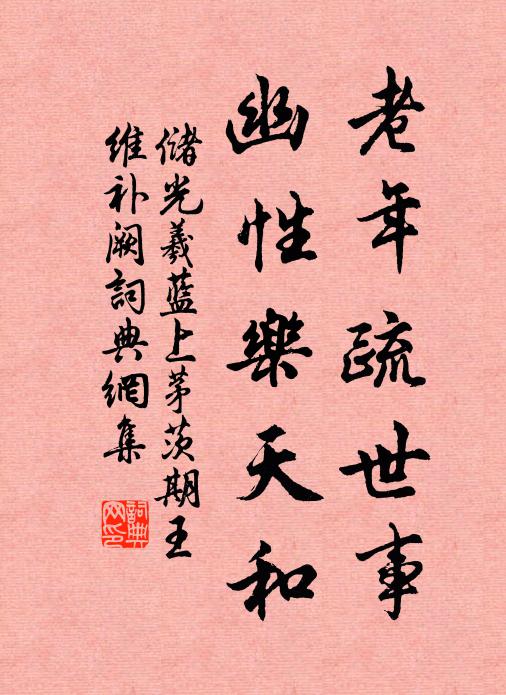 老年疏世事
幽性樂天和
儲光羲藍上茅茨期王
維补阙詞典網集
詞典
网印